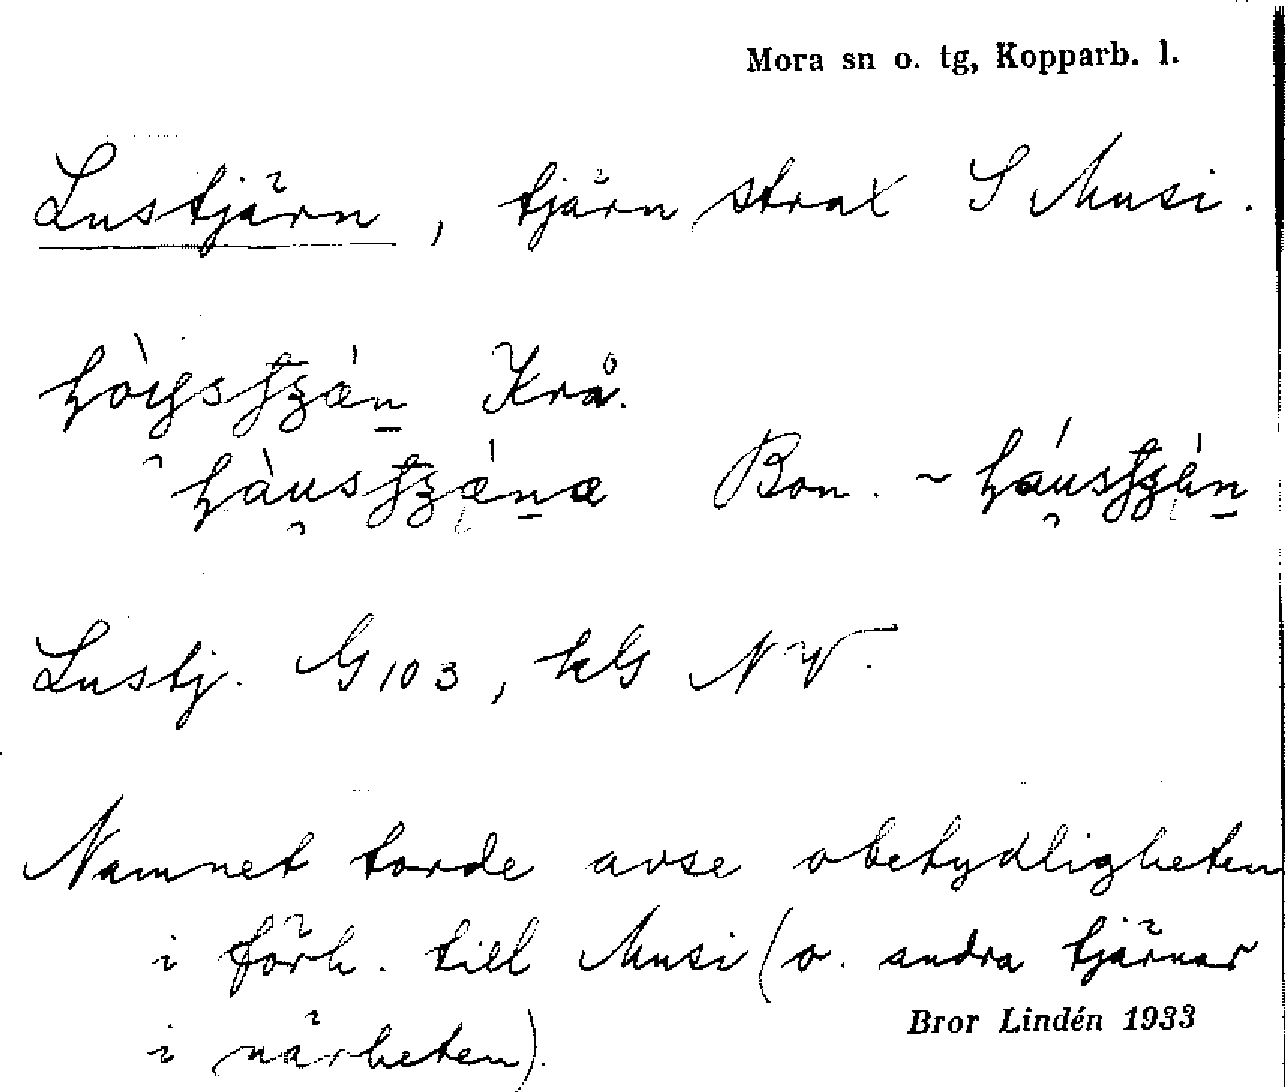 Mora sn o. tg, Kopparb. l.
Lustjärn, tjärn strax S Musi.
Krå.
Bon. ~
Lustj. G 103, kG NV.
Namnet torde avse obetydligheten
i förh. till Musi (o. andra tjärnar
i närheten).
Bror Lindén 1933